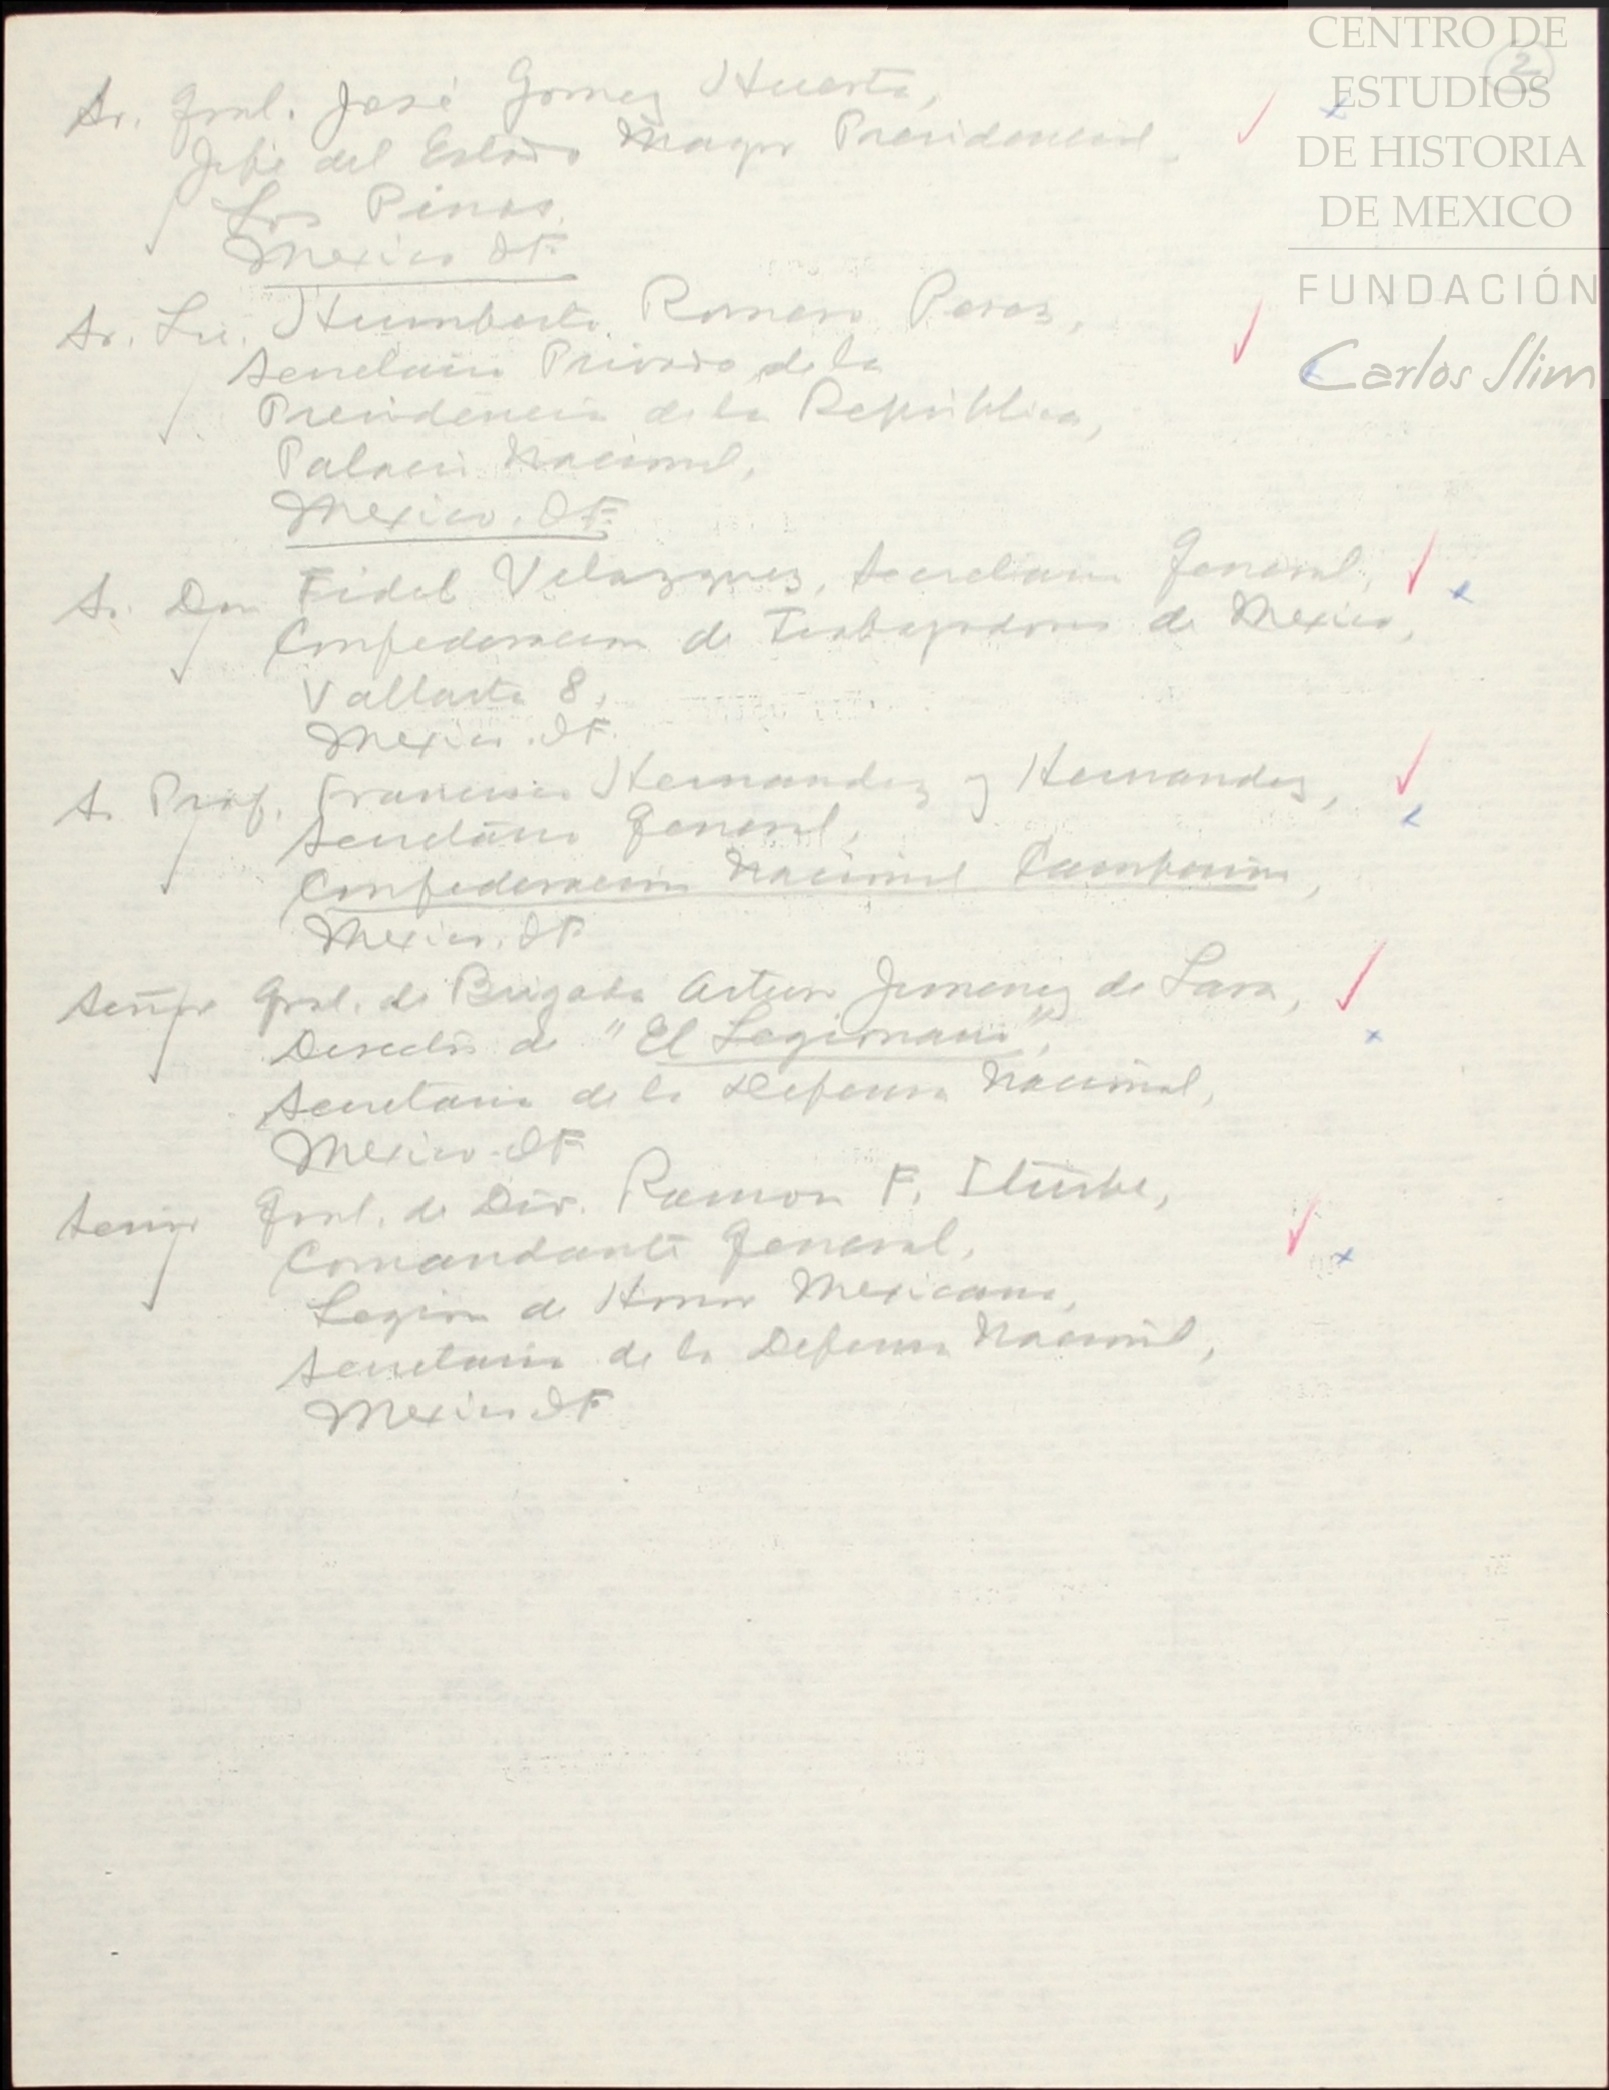 CENTRO DE
ESTUDIOS
DE HISTORIA
DE MEXICO
FUNDACIÓN
Carlos Slim
2
Sr. Gral. José Gomez Huerta,
Jefe del Estado Mayor Presidencial,
Los Pinos,
Mexico DF.
Sr. Lic. Humberto Romero Perez,
Secretario Privado de la
Presidencia de la República,
Palacio Nacional,
Mexico. DF.
Sr. Don Fidel Velazquez, Secretario General,
Confederacion de Trabajadores de Mexico,
Vallarta 8,
Mexico. DF.
Sr. Prof. Francisco Hernandez y Hernandez,
Secretario General,
Confederacion Nacional Campesina,
Mexico. DF
Señor Gral. de Brigada Arturo Jimenez de Lara,
Director de "El Legionario",
Secretaria de la Defensa Nacional,
Mexico. DF
Señor Gral. de Div. Ramon F. Iturbe,
Comandante General,
Legion de Honor Mexicana,
Secretaria de la Defensa Nacional,
Mexico DF